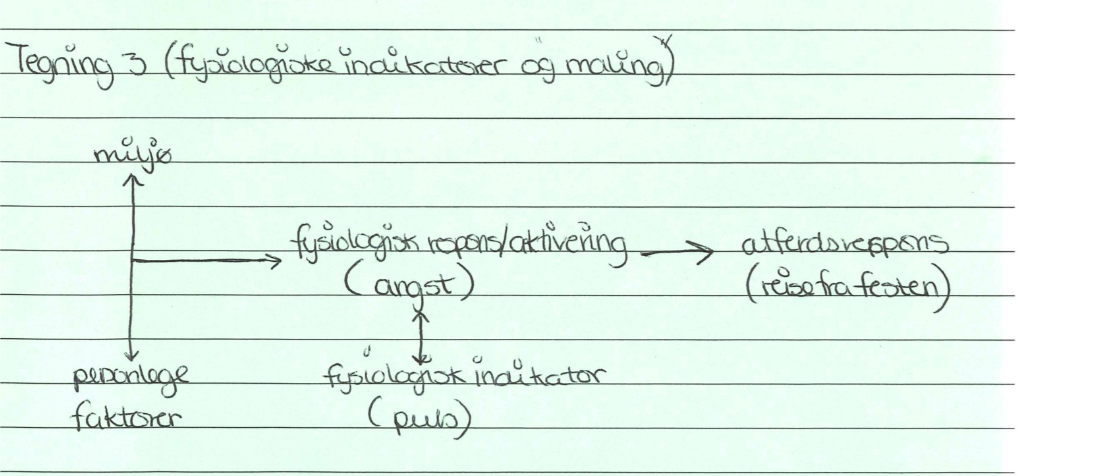 Tegning 3 (fysiologiske indikatorer og måling)
miljø
fysiologisk respons/aktivering
atferdsrespons
(angst)
(reise fra festen)
personlege
fysiologisk indikator
faktorer
(puls)